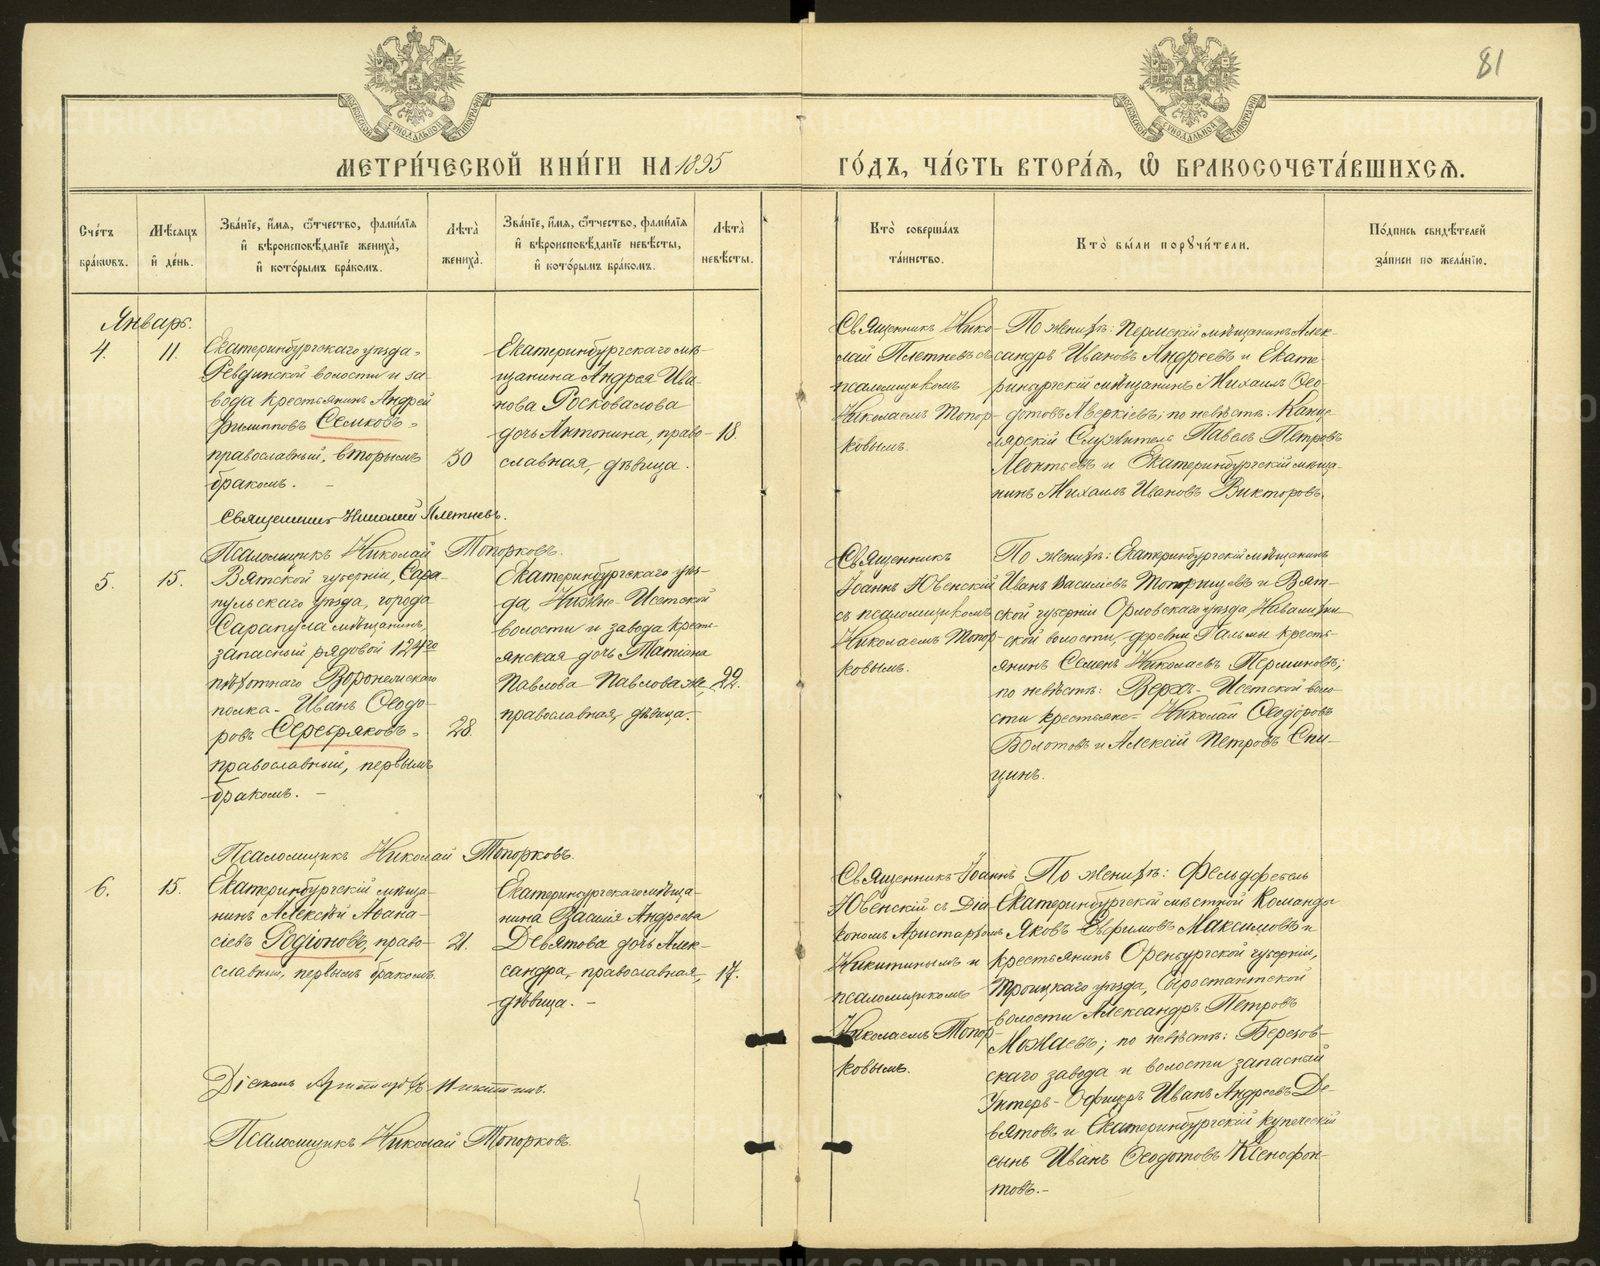 81
МЕТРИ́ЧЕСКОЙ КНИ́ГИ НА 1895 ГО́ДЪ, ЧА́СТЬ ВТОРА́Я, Ѽ БРАКОСОЧЕТА́ВШИХСЯ.
Сче́тъ бра́кѡвъ.
Мѣ́сяцъ и҆ де́нь.
Зва́нїе, и҆́мя, ѻ҆́тчество, фами́лїя
и҆ вѣроисповѣ́данїе жениха̀,
и҆ кото́рымъ бра́комъ.
Лѣ́та жениха̀.
Зва́нїе, и҆́мя, ѻ҆́тчество, фами́лїя
и҆ вѣроисповѣ́данїе невѣ́сты,
и҆ кото́рымъ бра́комъ.
Лѣ́та невѣ́сты.
Кто̀ соверша́лъ
та́инство.
Кто̀ бы́ли порꙋчи́тели.
По́дпись свидѣ́телей
за́писи по жела́нїю.
Январь.
4.
11.
Екатеринбургскаго уѣзда
Ревдинской волости и за-
вода крестьянинъ Андрей
Филипповъ Семковъ
православный, вторымъ
бракомъ.
30
Екатеринбургскаго мѣ-
щанина Андрея Ива-
нова Росковалова
дочь Антонина, право-
славная, дѣвица.
18.
Священникъ Нико-
лай Плетневъ съ
псаломщикомъ
Николаемъ Топор-
ковымъ.
По женихѣ: Пермскій мѣщанинъ Алек-
сандръ Ивановъ Андреевъ и Екате-
ринбургскій мѣщанинъ Михаилъ Ѳео-
дотовъ Аверкіевъ; по невѣстѣ: Канце-
лярскій Служитель Павелъ Петровъ
Леонтьевъ и Екатеринбургскій мѣща-
нинъ Михаилъ Ивановъ Викторовъ.
Священникъ Николай Плетневъ.
Псаломщикъ Николай Топорковъ.
5.
15.
Вятской губерніи, Сара-
пульскаго уѣзда, города
Сарапула мѣщанинъ,
запасный рядовой 124го
пѣхотнаго Воронежскаго
полка Иванъ Ѳеодо-
ровъ Серебряковъ
православный, первымъ
бракомъ.
28.
Екатеринбургскаго уѣз-
да, Нижне-Исетской
волости и завода кресть-
янская дочь Татіана
Павлова Павлова же,
православная, дѣвица.
22.
Священникъ
Іоаннъ Ювенскій
съ псаломщикомъ
Николаемъ Топор-
ковымъ.
По женихѣ: Екатеринбургскій мѣщанинъ
Иванъ Василіевъ и Вят-
ской губерніи Орловскаго уѣзда,
ской волости, деревни кресть-
янинъ Семенъ Николаевъ Перминовъ;
по невѣстѣ: Верхъ-Исетской воло-
сти крестьяне Николай Ѳеодоровъ
Болотовъ и Алексій Петровъ Спи-
цинъ.
Псаломщикъ Николай Топорковъ.
6.
15.
Екатеринбургскій мѣща-
нинъ Алексѣй Аѳана-
сіевъ Родіоновъ, право-
славный, первымъ бракомъ
21.
Екатеринбургскаго мѣща-
нина Василія Андреева
Девятова дочь Алек-
сандра, православная,
дѣвица.
17.
Священникъ Іоаннъ
Ювенскій съ Діа-
кономъ Аристархомъ
Никитинымъ и
псаломщикомъ
Николаемъ Топор-
ковымъ.
По женихѣ: Фельдфебель
Екатеринбургской мѣстной Команды
Яковъ Евфимовъ Максимовъ и
крестьянинъ Оренбургской губерніи,
Троицкаго уѣзда, Сыростантской
волости Александръ Петровъ
Можаевъ; по невѣстѣ: Березов-
скаго завода и волости запасный
Унтеръ-Офицеръ Иванъ Андреевъ Де-
вятовъ и Екатеринбургскій купеческій
сынъ Иванъ Ѳеодотовъ Ксенофон-
товъ.
Діаконъ Аристархъ Никитинъ.
Псаломщикъ Николай Топорковъ.